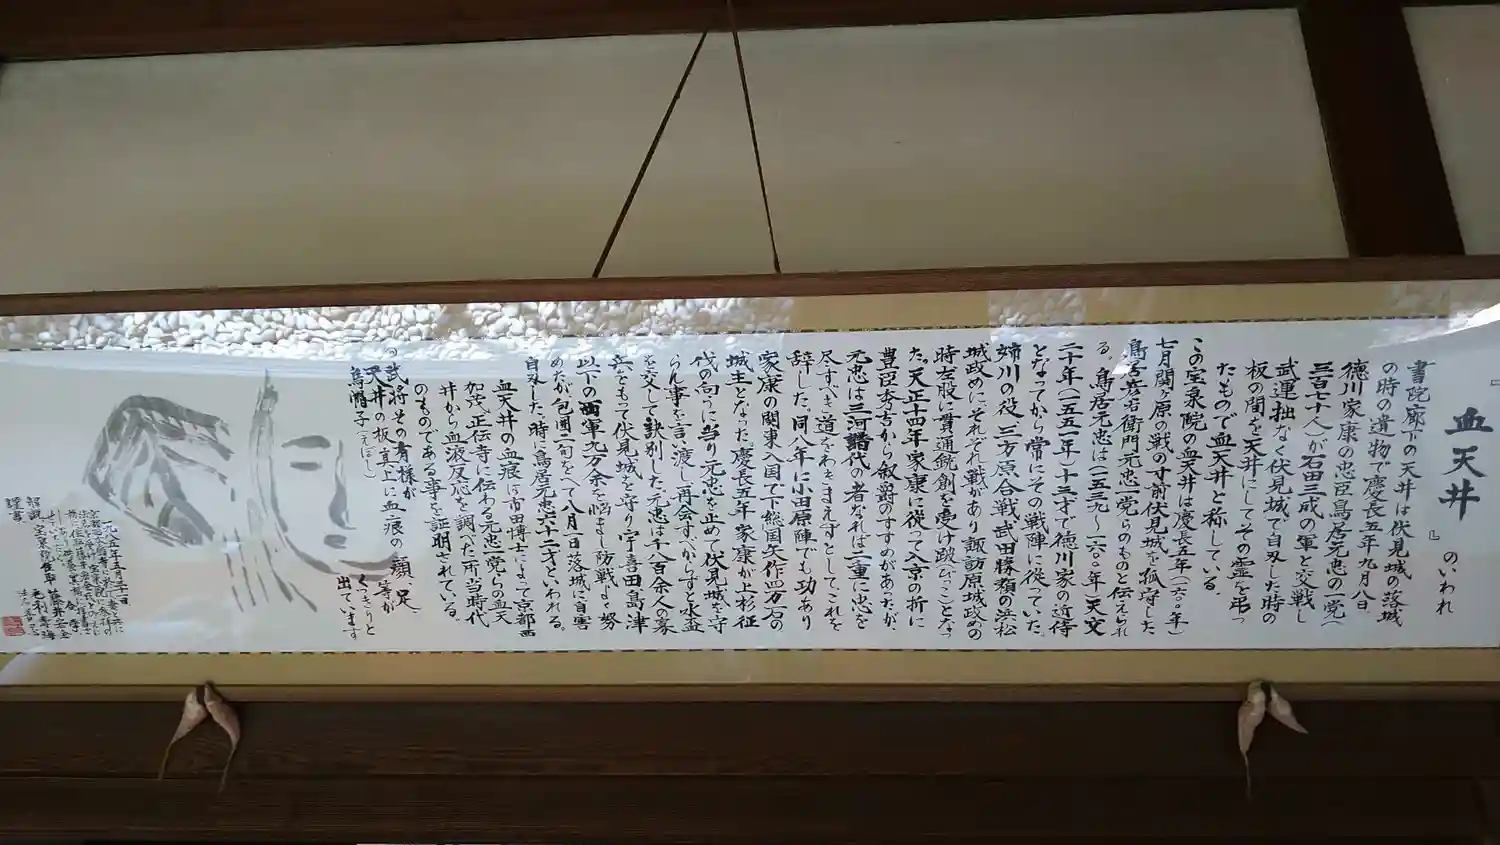 『血天井』のいわれ
書院廊下の天井は伏見城の落城
の時の遺物で慶長五年九月八日
徳川家康の忠臣鳥居元忠の一党(
三百七十人)が石田三成の軍と交戦し
武運拙なく伏見城で自刄した時の
板の間を天井にしてその霊を弔っ
たもので血天井と称している。
この宝泉院の血天井は慶長五年(一六〇〇年)
七月関ヶ原の戦の寸前伏見城を孤守した
鳥居彦右衛門元忠一党らのものと伝えられ
る。鳥居元忠は(一五三九〜一六〇〇年)天文
二十年(一五五一年)十三才で徳川家の近侍
となってから常にその戦陣に従っていた。
姉川の役、三方原合戦、武田勝頼の浜松
城攻めにそれぞれ戦があり諏訪原城攻めの
時左股に貫通銃創を受け跛ひことなっ
た。天正十四年家康に従って入京の折に
豊臣秀吉から叙爵のすすめがあったが、
元忠は三河譜代の者なれば二重に忠を
尽すべき道をわきまえずとしてこれを
辞した。同八年に小田原陣でも功あり
家康の関東入国で下総国矢作四万石の
城主となった。慶長五年家康が上杉征
伐の向うに当り元忠を止めて伏見城を守
らん事を言い渡し再会すべからずと水盃
を交して訣別した。元忠は千八百余人の家
兵をもって伏見城を守り宇喜田島津
以下の西軍九万余を悩まし防戦よく努
めたが包囲二旬をへて八月一日落城に自害
自刄した。時に鳥居元忠六十二才といわれる。
血天井の血痕は市田博士によって京都西
加茂正伝寺に伝わる元忠一党らの血天
井から血液反応を調べた所当時代
のものである事を証明されている。
の武将その有様が
天井の板、真上に血痕の顔、足
烏帽子(えぼし)等が
くっきりと
出ています